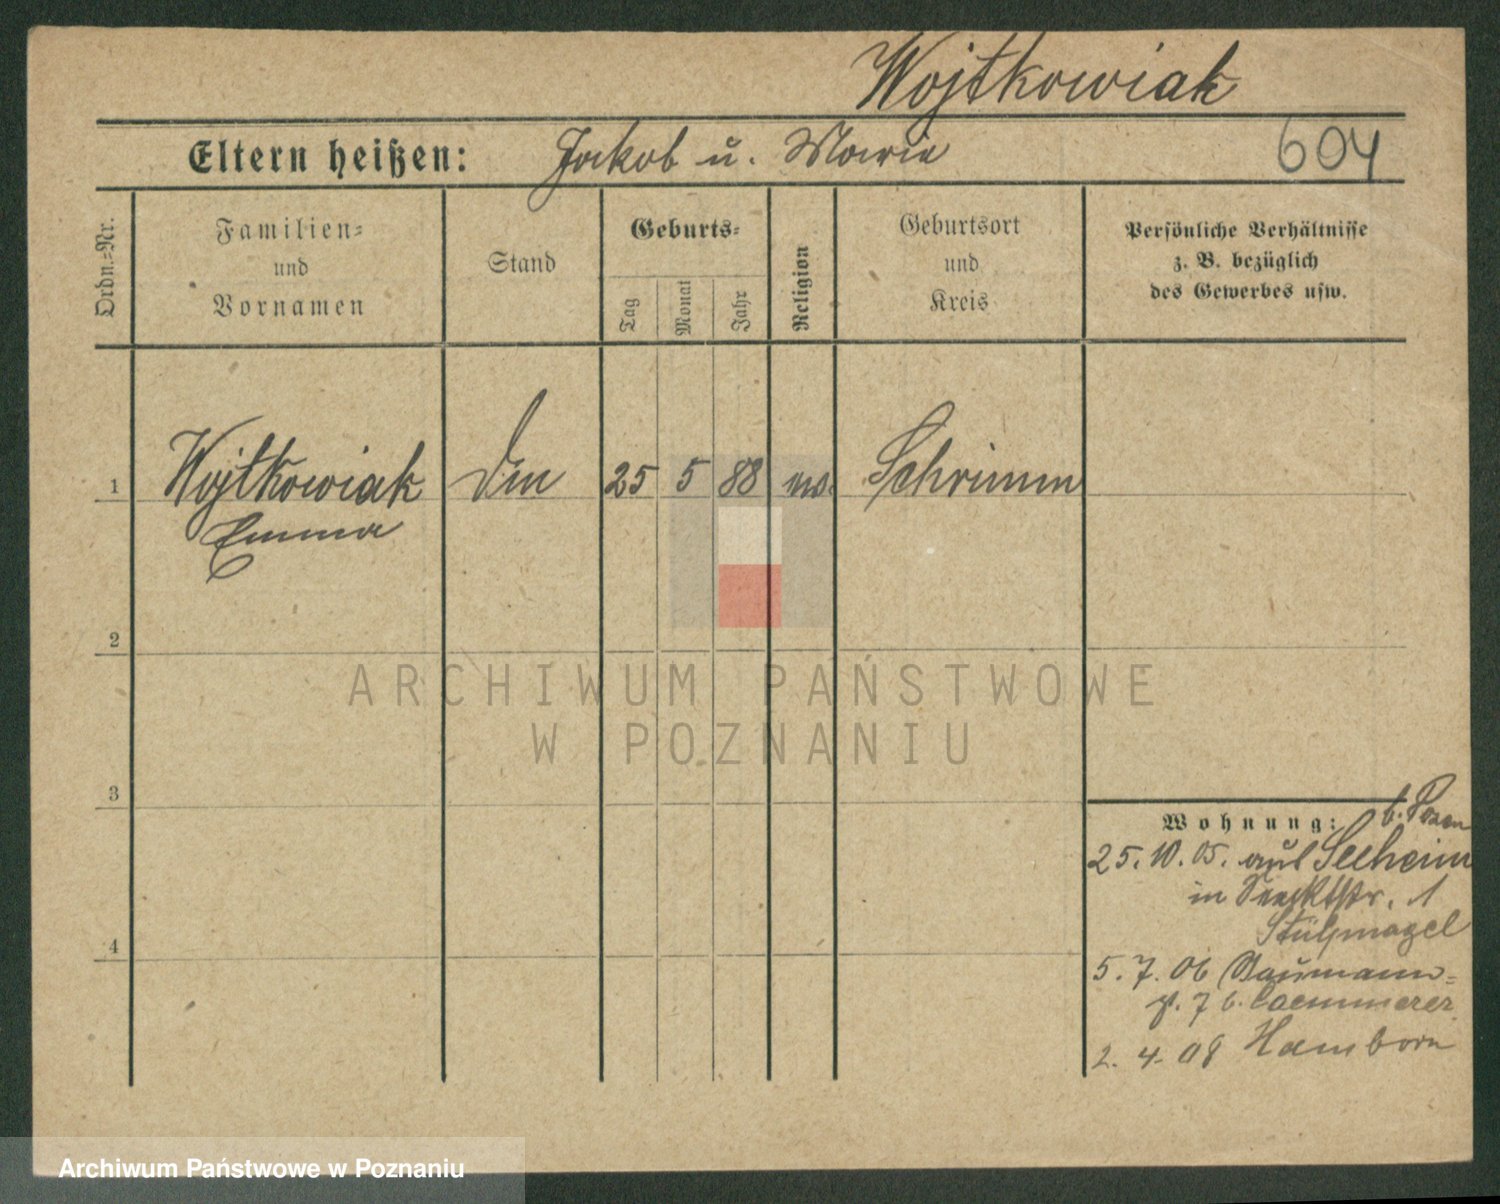 Wojtkowiak
Eltern heißen: Jakob u. Marie 604
Ordn.-Nr.
Familien-
und
Vornamen
Stand
Geburts-
Tag
Monat
Jahr
Religion
Geburtsort
und
Kreis
Persönliche Verhältnisse
z. B. bezüglich
des Gewerbes usw.
1 Wojtkowiak 25 5 88 Schrimm
Emma
2
ARCHIWUM PAŃSTWOWE
W POZNANIU
3
Wohnung: b. Posen
25. 10. 05. aus Seeheim
in 1
Stülpnagel
5. 7. 06 Naumann-
7 b. Caemmerer
2. 4. 08 Hamborn
4
Archiwum Państwowe w Poznaniu